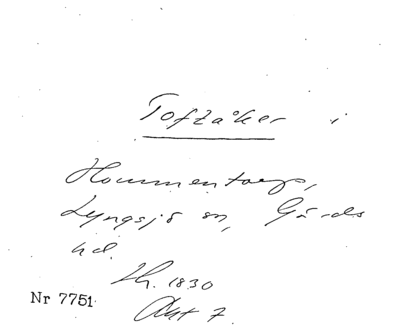 Toftaåker i
Hommentorp,
Lyngsjö sn, Gärds
hd.
Lh. 1830
Akt 7
Nr 7751